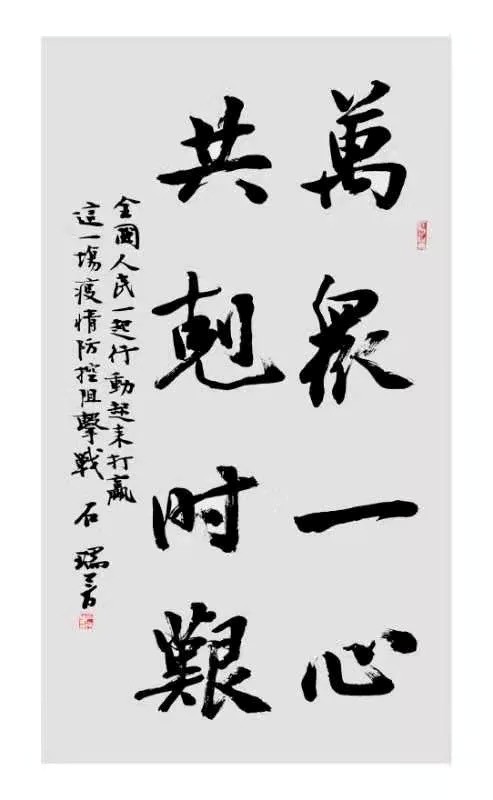 萬眾一心
共剋时艱
全國人民一起行動起来打贏
這一場疫情防控阻擊戰 石瑞芳